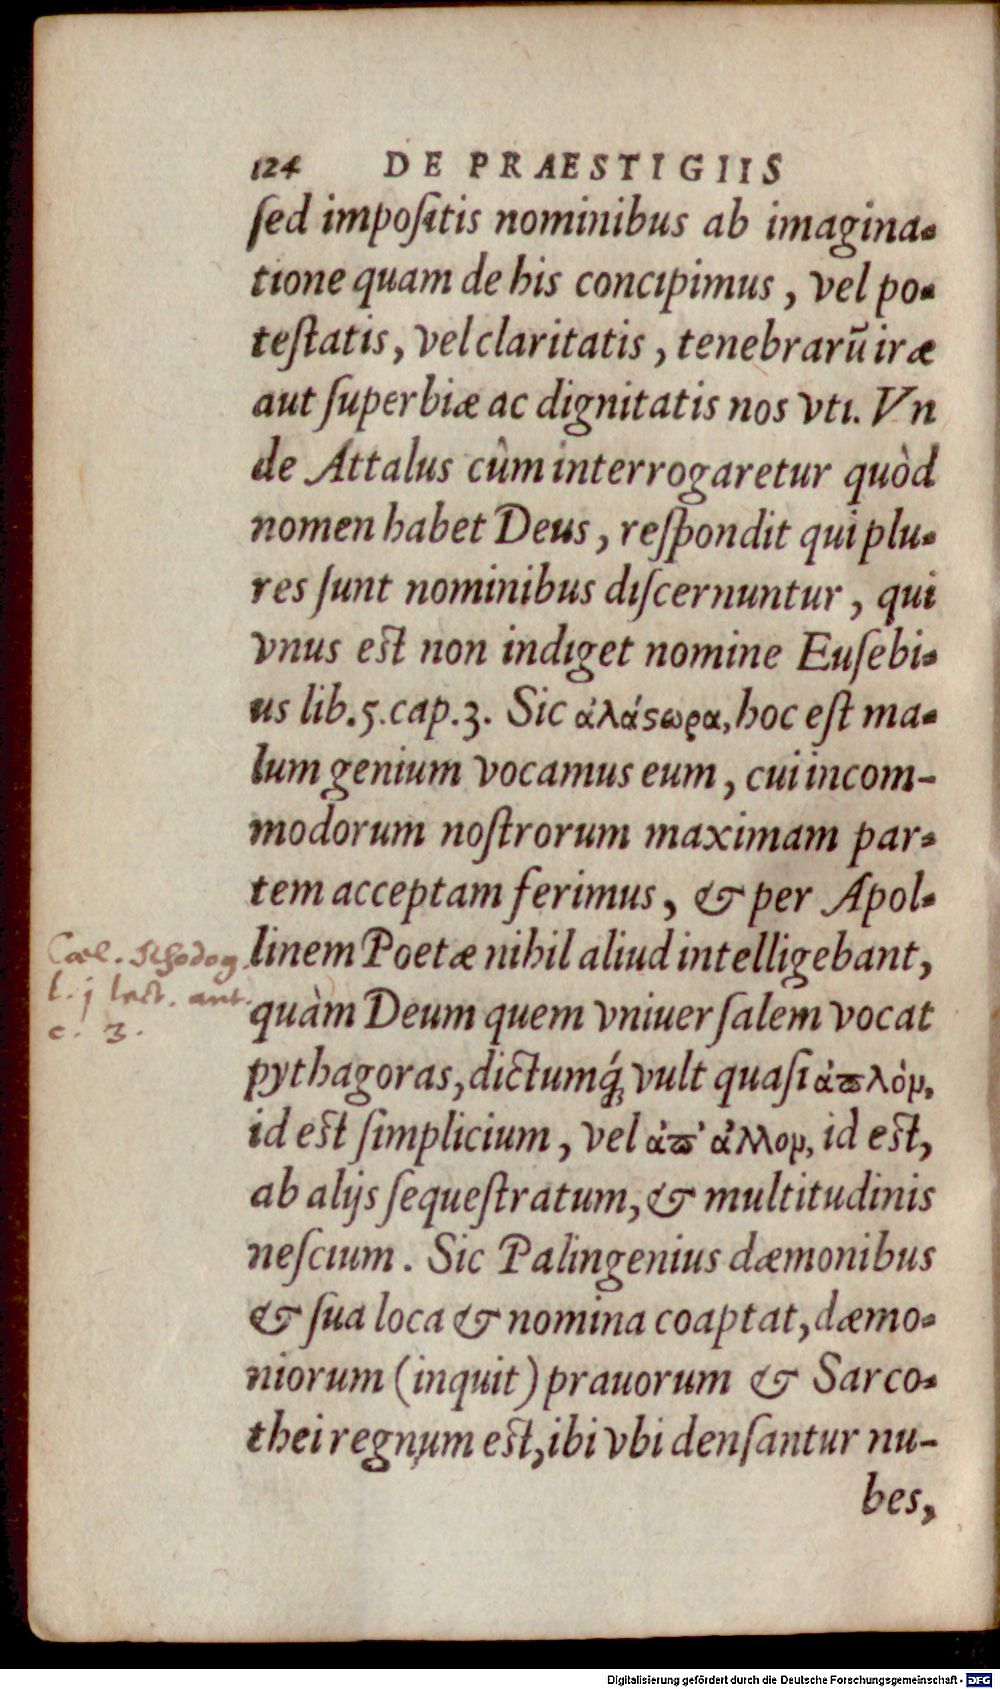 124 DE PRAESTIGIIS
ſed impoſitis nominibus ab imagina-
tione quam de his concipimus, vel po-
teſtatis, vel claritatis, tenebrarũ iræ
aut ſuperbiæ ac dignitatis nos vti. Vn
de Attalus cûm interrogaretur quòd
nomen habet Deus, reſpondit qui plu-
res ſunt nominibus diſcernuntur, qui
vnus eſt non indiget nomine Euſebi-
us lib. 5. cap. 3. Sic ἀλάϛωρα, hoc eſt ma-
lum genium vocamus eum, cui incom-
modorum noſtrorum maximam par-
tem acceptam ferimus, & per Apol-
linem Poetæ nihil aliud intelligebant,
quàm Deum quem vniuerſalem vocat
pythagoras, dictumq́; vult quaſi ἁϖλὸμ,
id eſt ſimplicium, vel ἀϖ' ἄλλομ, id eſt,
ab alijs ſequeſtratum, & multitudinis
neſcium. Sic Palingenius dæmonibus
& ſua loca & nomina coaptat, dæmo-
niorum (inquit) prauorum & Sarco-
thei regnum eſt, ibi vbi denſantur nu-
bes,
Cæl. Rhodog.
l. j lect. ant.
c. 3.
Digitalisierung gefördert durch die Deutsche Forschungsgemeinschaft - DFG